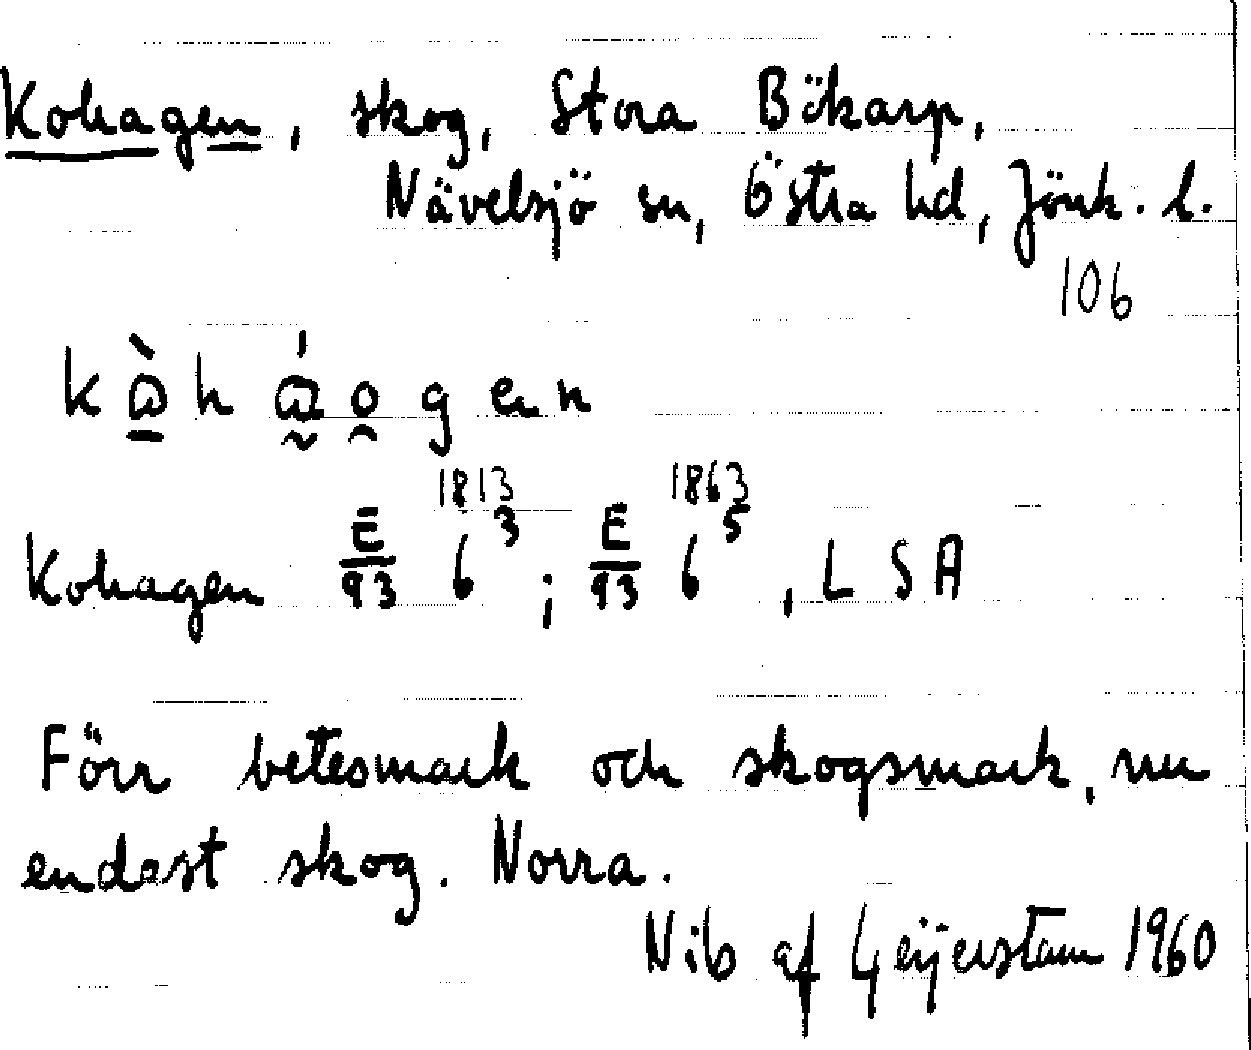 Kohagen, skog, Stora Bökarp,
Nävelsjö sn, Östra hd, Jönk. l.
106
Kohagen E/93 6 1813 3; E/93 6 1863 5, LSA
Förr betesmark och skogsmark, nu
endast skog. Norra.
Nib af Geijerstam 1960